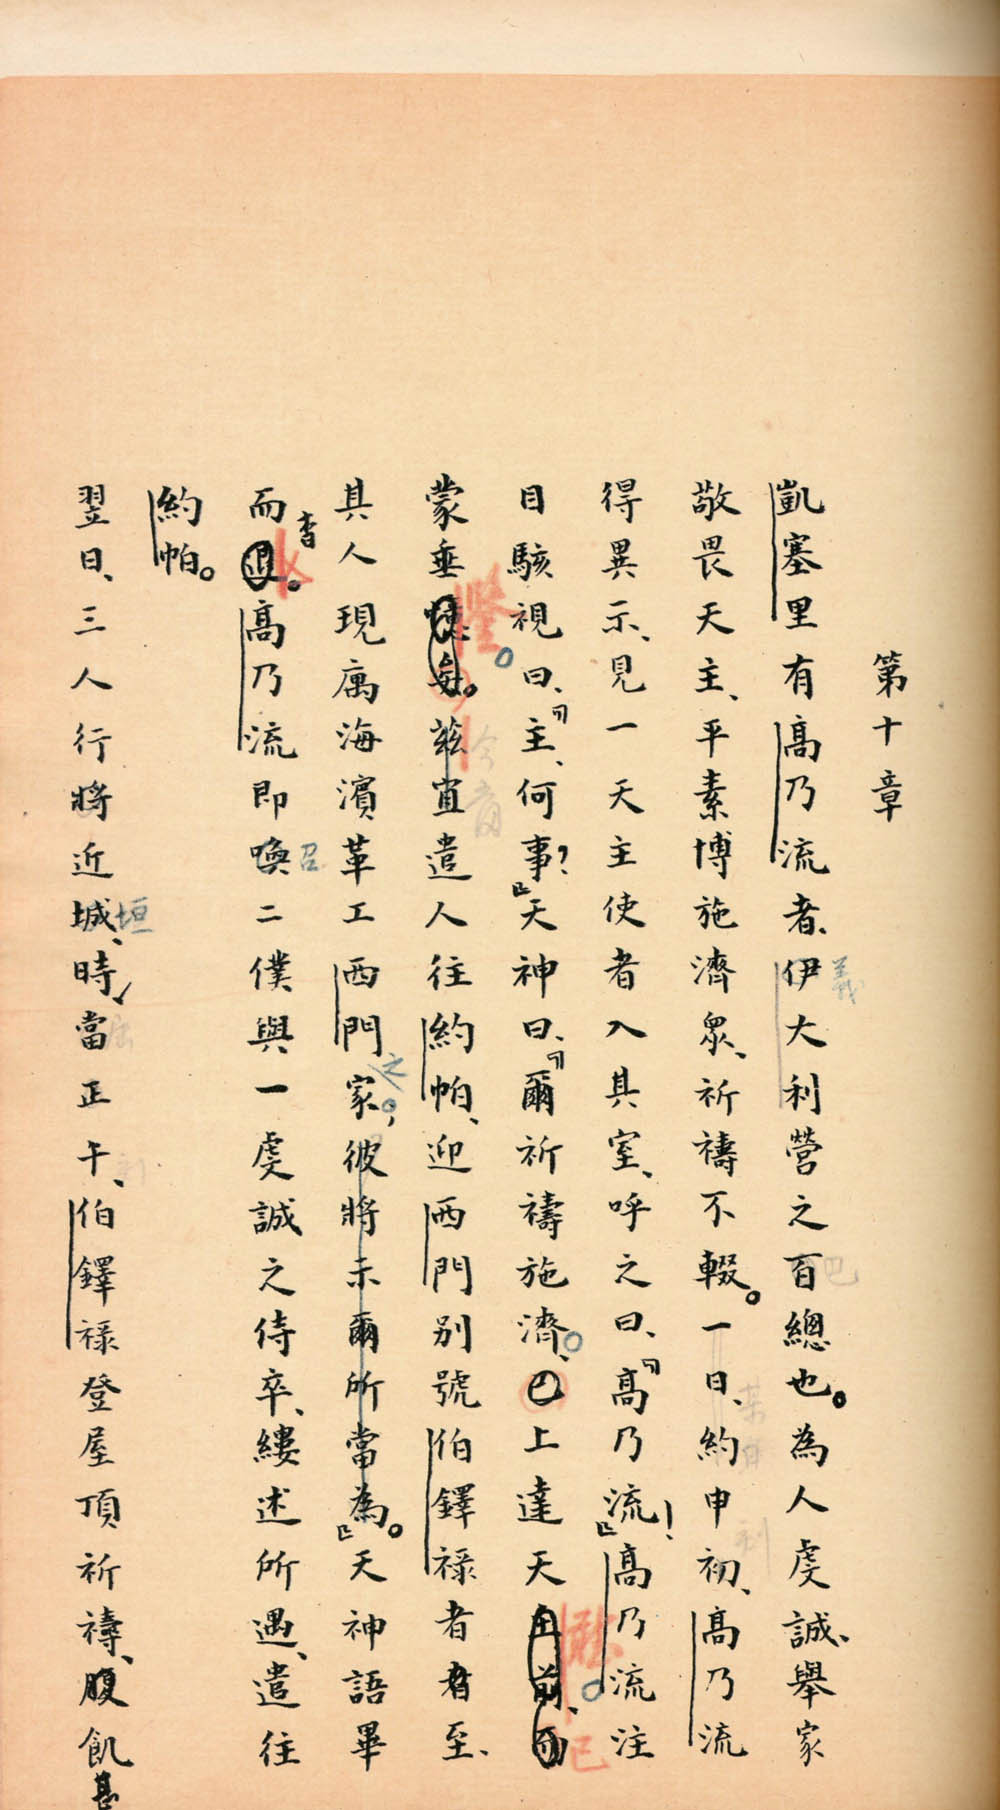 第十章
凱塞里有高乃流者、伊大利營之百總也。為人虔誠、舉家
敬畏天主、平素博施濟眾、祈禱不輟。一日、約申初、高乃流
得異示、見一天主使者入其室、呼之曰、『高乃流！』高乃流注
目駭視曰、『主、何事？』天神曰、『爾祈禱施濟、已上達天主前、而
蒙垂鑒。茲宜遣人往約帕、迎西門別號伯鐸祿者至、
其人現寓海濱革工西門家、彼將示爾所當為。』天神語畢
而杳。高乃流即喚二僕與一虔誠之侍卒、縷述所遇、遣往
約帕。
翌日、三人行將近城、時當正午、伯鐸祿登屋頂祈禱、腹飢甚
義
召
垣
之
歆
已